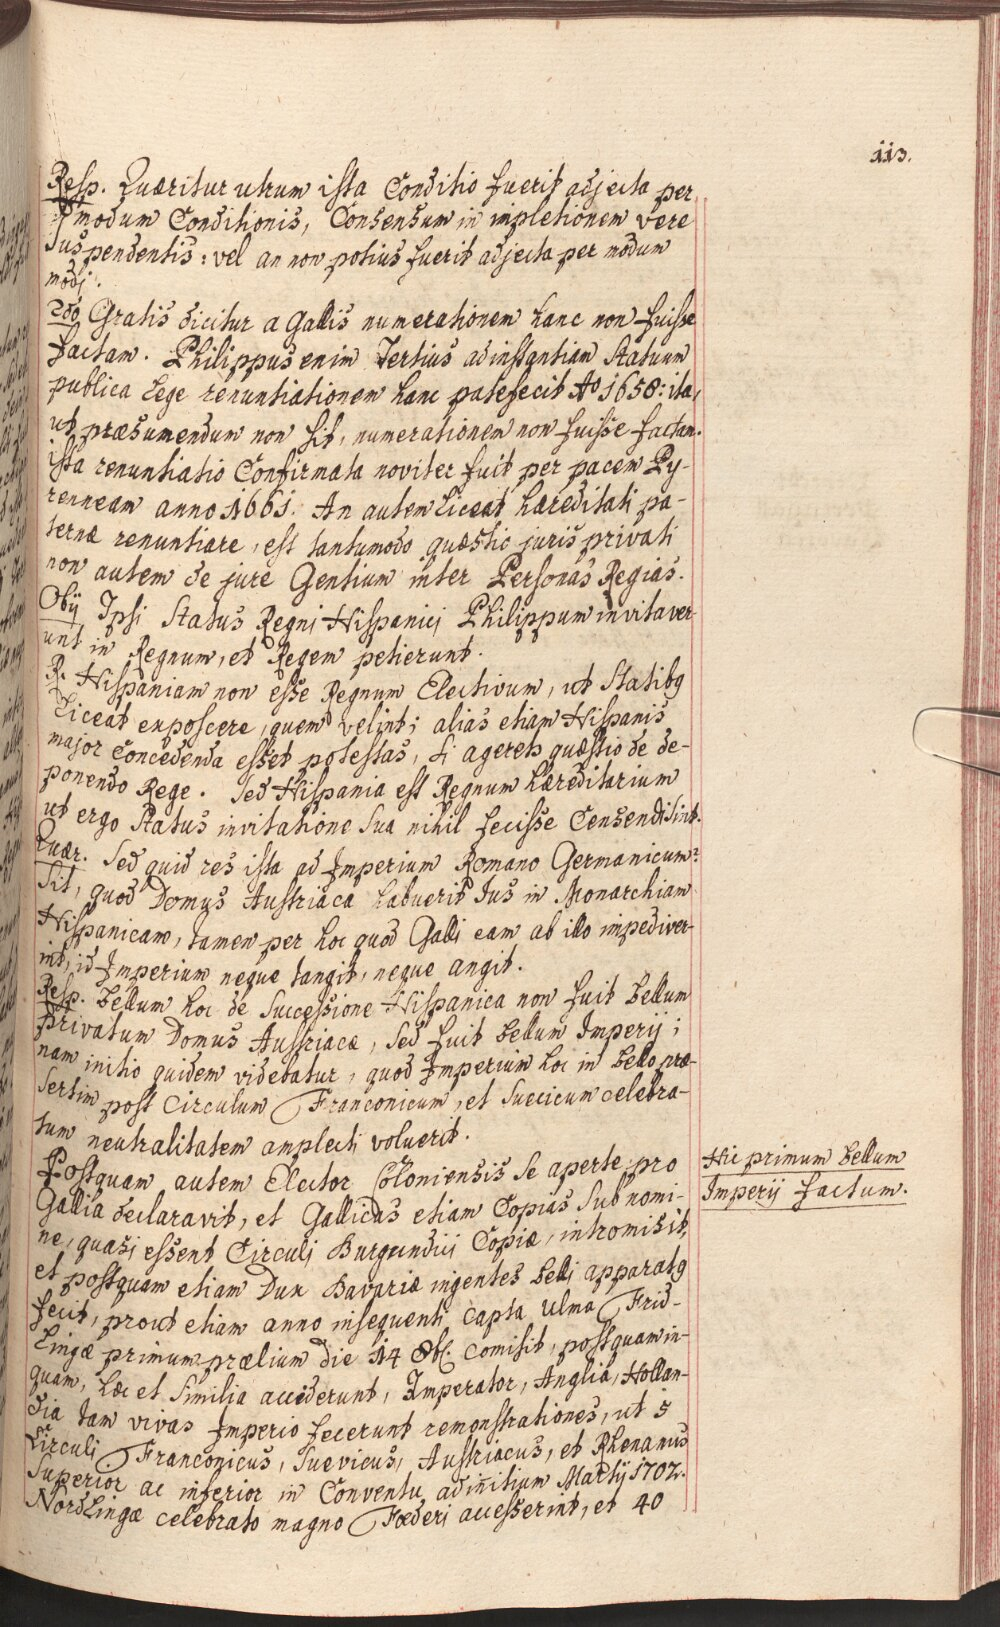 113.
Resp. Quæritur utrum ista Conditio fuerit adjecta per
modum Conditionis, Consensum in impletionem vere
suspendentis: vel an non potius fuerit adjecta per modum
modj.
2do Gratis dicitur a Gallis numerationem hanc non fuisse
factam. Philippus enim Tertius ad instantiam Statuum
publica Lege renuntiationem hanc patefecit Ao 1658: ita,
ut præsumendum non sit, numerationem non fuisse factam.
ista renuntiatio Confirmata noviter fuit per pacem Py-
renneam anno 1661. An autem liceat hæreditati pa-
ternæ renuntiare, est tantumodo quæstio juris privati
non autem de jure Gentium inter Personas Regias.
Obij Ipsi Status Regnj Hispanicj Philippum invitaver-
unt in Regnum, et Regem petierunt.
R. Hispaniam non esse Regnum Electivum, ut Statibg
Liceat exposcere, quem velint; alias etiam Hispanis
major Concedenda esset potestas, si ageretr quæstio de de-
ponendo Rege. Sed Hispania est Regnum hæreditarium
ut ergo Status invitatione sua nihil fecisse Censendi sint.
Quær. Sed quid res ista ad Imperium Romano Germanicum?
Sit, quod Domus Austriaca habuerit Jus in Monarchiam
Hispanicam, tamen per hoc quod Galli eam ab illo impediver-
int, id Imperium neque tangit, neque angit.
Resp. bellum hoc de Successione Hispanica non fuit bellum
privatum Domus Austriacæ, sed fuit bellum Imperij;
nam initio quidem videbatur, quod Imperium hoc in bello præ-
sertim post Circulum Franconicum, et Suecicum celebra-
tum neutralitatem amplecti voluerit.
Postquam autem Elector Coloniensis se aperte pro
Gallia declaravit, et Gallicas etiam Copias sub nomi-
ne, quasi essent Circuli Burgundici Copiæ, intromisit,
et postquam etiam Dux Bavariæ ingentes belli apparatg
fecit, prout etiam anno insequenti capta Ulma Frid-
lingæ primum prælium die 14 8b. comisit, postquam in-
quam, hæc et similia acciderunt, Imperator, Anglia, Hollan-
dia tam vivas Imperio fecerunt remonstrationes, ut 5
Circuli Franconicus, Suevicus, Austriacus, et Rhenanus
Superior ac inferior in Conventu ad initium Martij 1702.
Nordlingæ celebrato magno Fœderi accesserint, et 40
Hic primum bellum
Imperij factum.